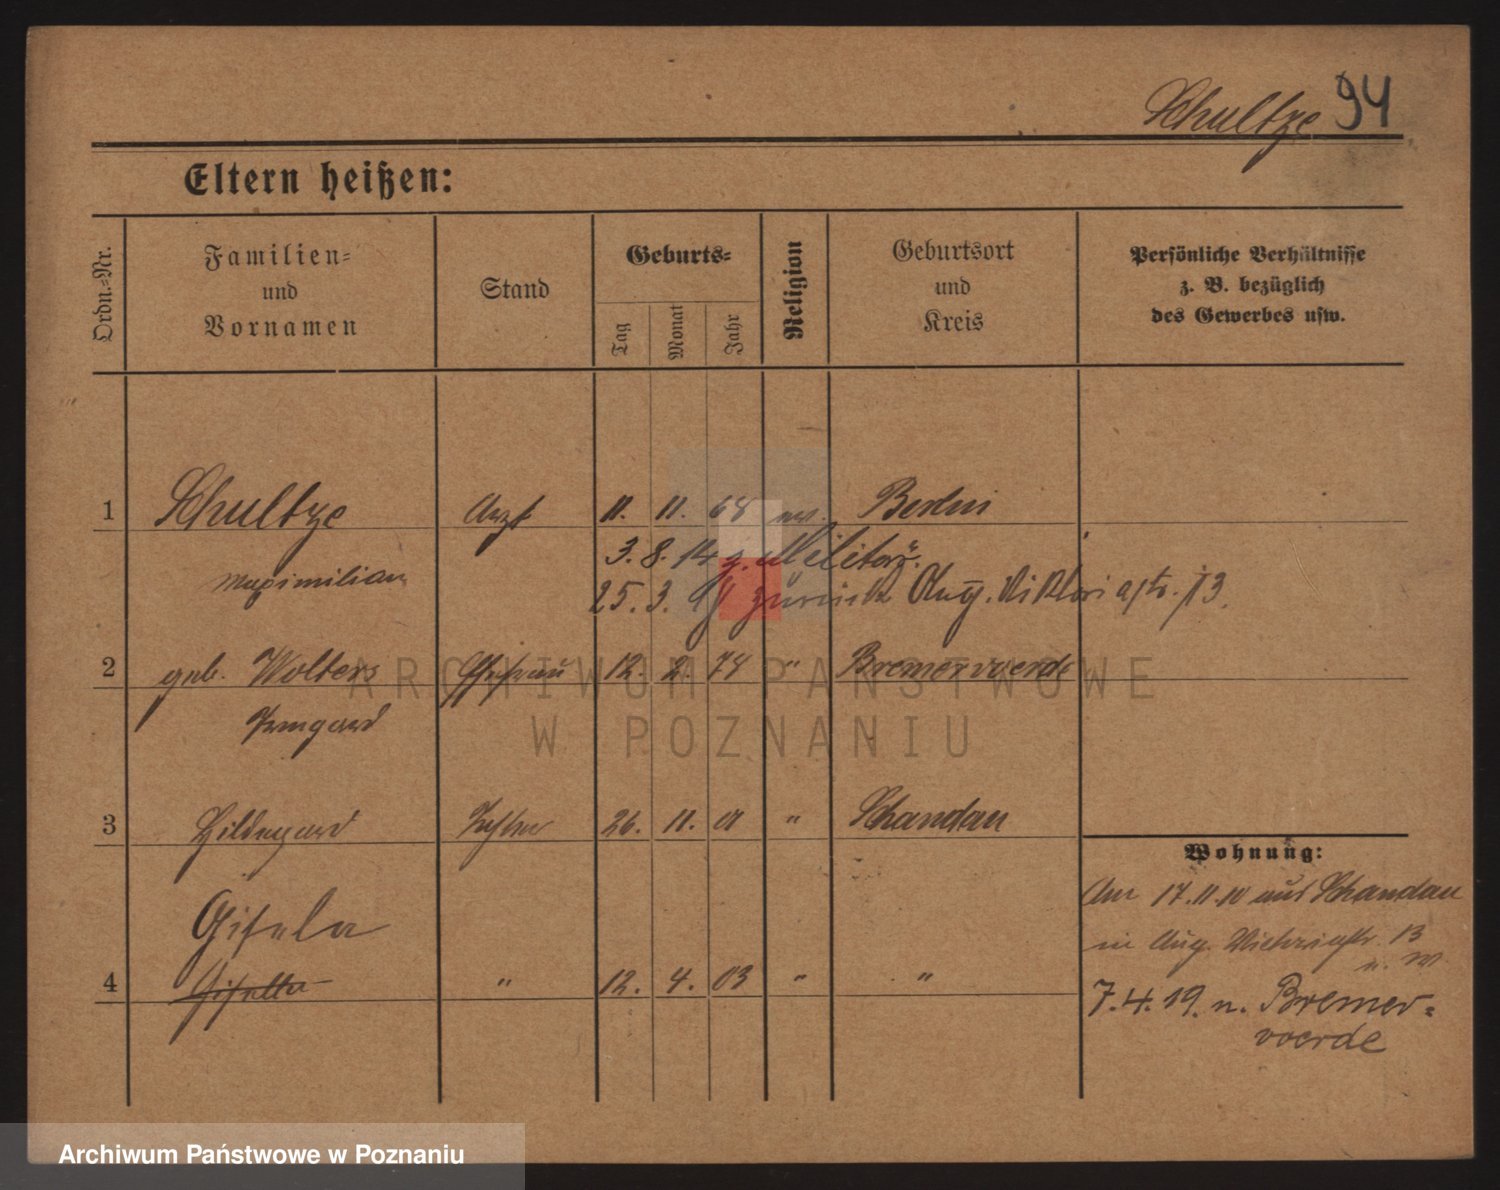 Schultze 94
Eltern heißen:
Ordn.-Nr.
Familien-
und
Vornamen
Stand
Geburts-
Tag
Monat
Jahr
Religion
Geburtsort
und
Kreis
Persönliche Verhältnisse
z. B. bezüglich
des Gewerbes usw.
1 Schultze Arzt 11. 11. 68 ev. Berlin
Maximilian
3. 8. 14 z. Militär.
25. 3. zurück Aug. Viktoriastr. 13.
2 geb. Wolters Ehefrau 12. 2. 78 " Bremervoerde
Irmgard
3 Hildegard Tochter 26. 11. 01 " Schandau
Gisela
4 Gisella " 12. 4. 03 " "
Wohnung:
Am 17.11.10 aus Schandau
in Aug. Victoriastr. 13
7.4.19. n. Bremer-
voerde
ARCHIWUM PAŃSTWOWE
W POZNANIU
Archiwum Państwowe w Poznaniu